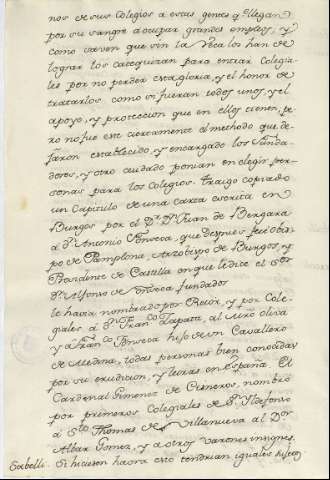 nos de sus Colegios a estas gentes q.e llegan
por su sangre a ocupar grandes empleos, y
como saven que sin la Veca los han de
lograr los catequizan para entrar Colegia-
les por no perder esta gloria, y el honor de
tratarlos como si fueran todos unos, y el
apoyo, y proteccion que en ellos tienen, pe
ro no fue este ciertamente el methodo que de-
jaron establecido, y encargado los Funda-
dores, y otro cuidado ponian en elegir per-
sonas para los Colegios. Traigo copiado
un Capitulo de una carta escrita en
Burgos por el D.r D.n Juan de Bergara
a D.n Antonio Fonseca, que despues fue obis-
po de Pamplona, Arzobispo de Burgos, y
Presidente de Castilla en que le dice el S.or
D.n Alfonso de Fonseca fundador
le havia nombrado por Retor, y por Cole-
giales a D.n Fran.co Zapata, al Mro oliva
y a Fran.co Fonseca hijo de un Cavallero
de Medina, todas personas bien conocidas
por su erudicion, y letras en España. El
Cardenal Gimenez de Cisneros, nombró
por primeros Colegiales de S.n Ildefonso
a S.to Thomas de Villanueva al D.or
Albar Gomez, y a otros varones insignes.
Si hiciesen haora esto tendrian iguales hijos